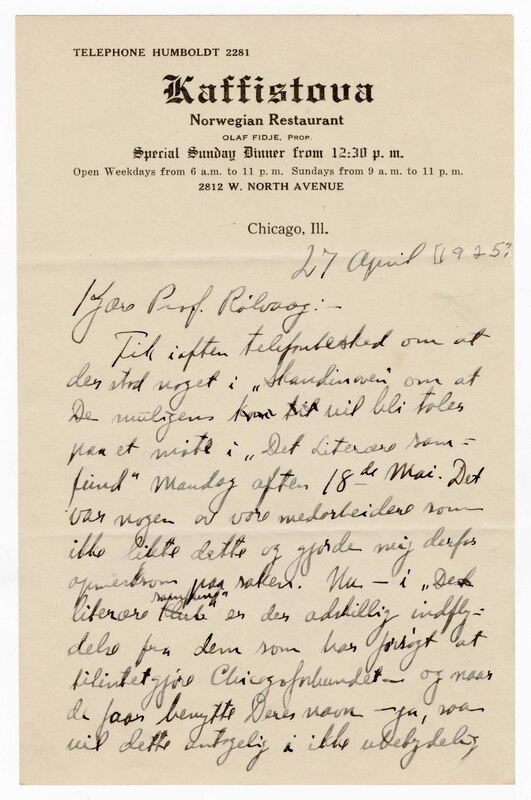 TELEPHONE HUMBOLDT 2281
Kaffistova
Norwegian Restaurant
OLAF FIDJE, PROP.
Special Sunday Dinner from 12:30 p. m.
Open Weekdays from 6 a.m. to 11 p. m. Sundays from 9 a. m. to 11 p. m.
2812 W. NORTH AVENUE
Chicago, Ill.
27 April [1925?
Kjære Prof. Rölvaag:-
Fik iaften telefonbesked om at
der stod noget i "Skandinaven" om at
De muligens kan til vil bli taler
paa et möte i "Det Literære Sam-
fund" Mandag aften 18de Mai. Det
var nogen av vore medarbeidere som
ikke likte dette og gjorde mig derfor
opmerksom paa saken. Nu - i "Det
literære samfund" Klub" er der adskillig indfly-
delse fra dem som har forsögt at
tilintetgjöre Chicagoforbundet - og naar
de faar benytte Deres navn - ja, saa
vil dette antagelig i ikke ubetydelig